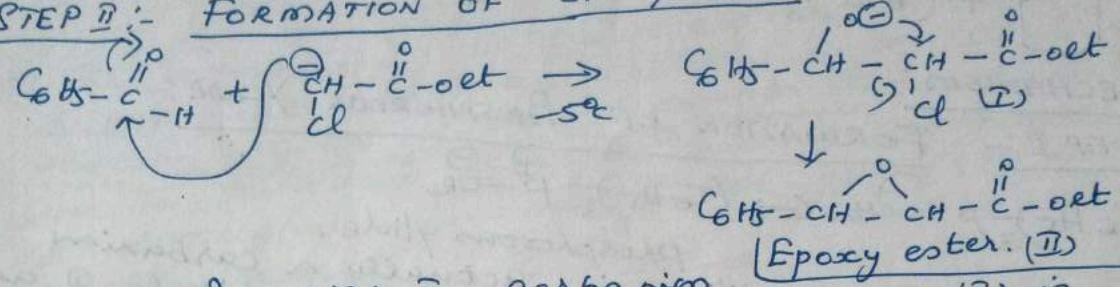 STEP II :- FORMATION OF
C6H5-C(=O)-H + ⊖CH(Cl)-C(=O)-oet → -5°C C6H5-CH(O⊖)-CH(Cl)-C(=O)-oet (I)
↓
C6H5-CH-(O)-CH-C(=O)-oet
Epoxy ester. (II)